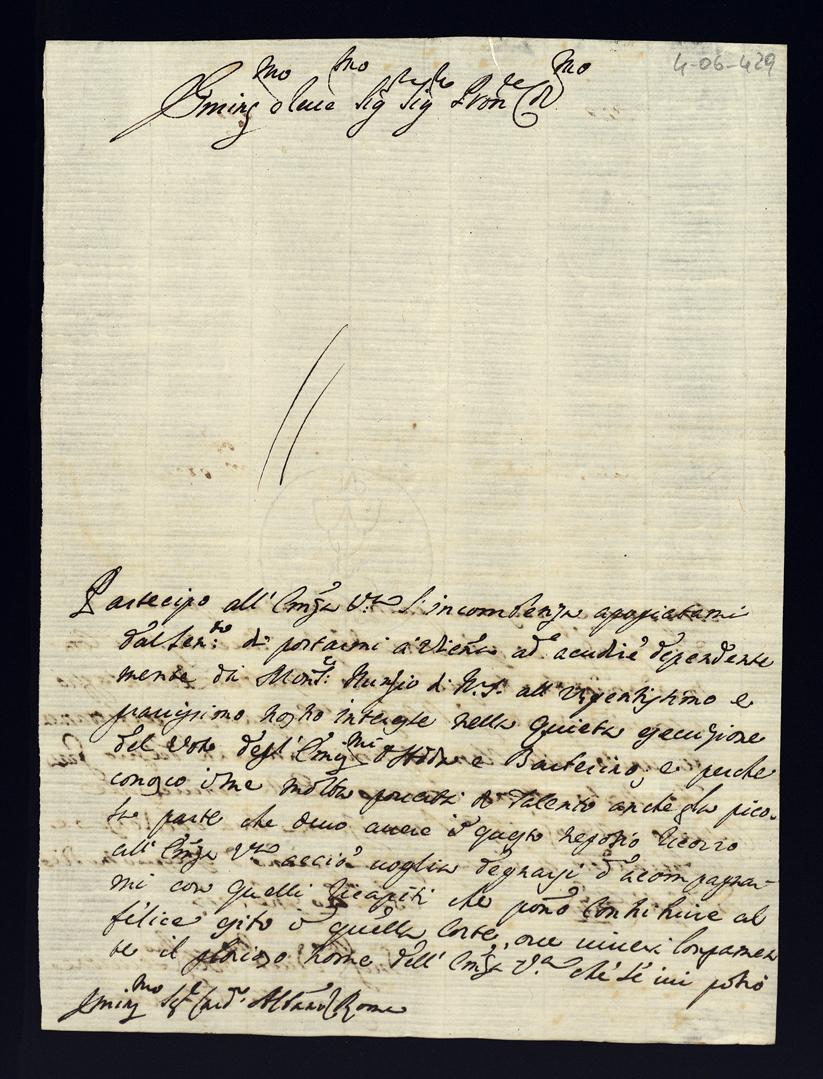 4-06-429
Emin.mo e Rev.mo Sig.r Sig.r Pron.e Col.mo
Partecipo all' Emza V.ra l'incombenza appogiatami
dal Ser.mo di portarmi a Viena ad acudire dipendente
mente da Mons.r Nunzio di N.S. all' urgentissimo e
gravissimo nostro interesse nella quieta esecuzione
del Voto degl' Em.mi d'Adda e Barberino; e perche
conosco i me molta povertà di talento anche p la pico-
la parte che devo avere i questo negozio ricorro
all' Emza V.ra acciò voglia degnarsi d' acompagnar-
mi con quelli ricapiti che pono contribuire al
felice esito i quella Corte, ove viverà longamen
te il glorioso nome dell' Emza V.ra che se mi potrò
Emin.mo Sig.r Card. Albani Roma